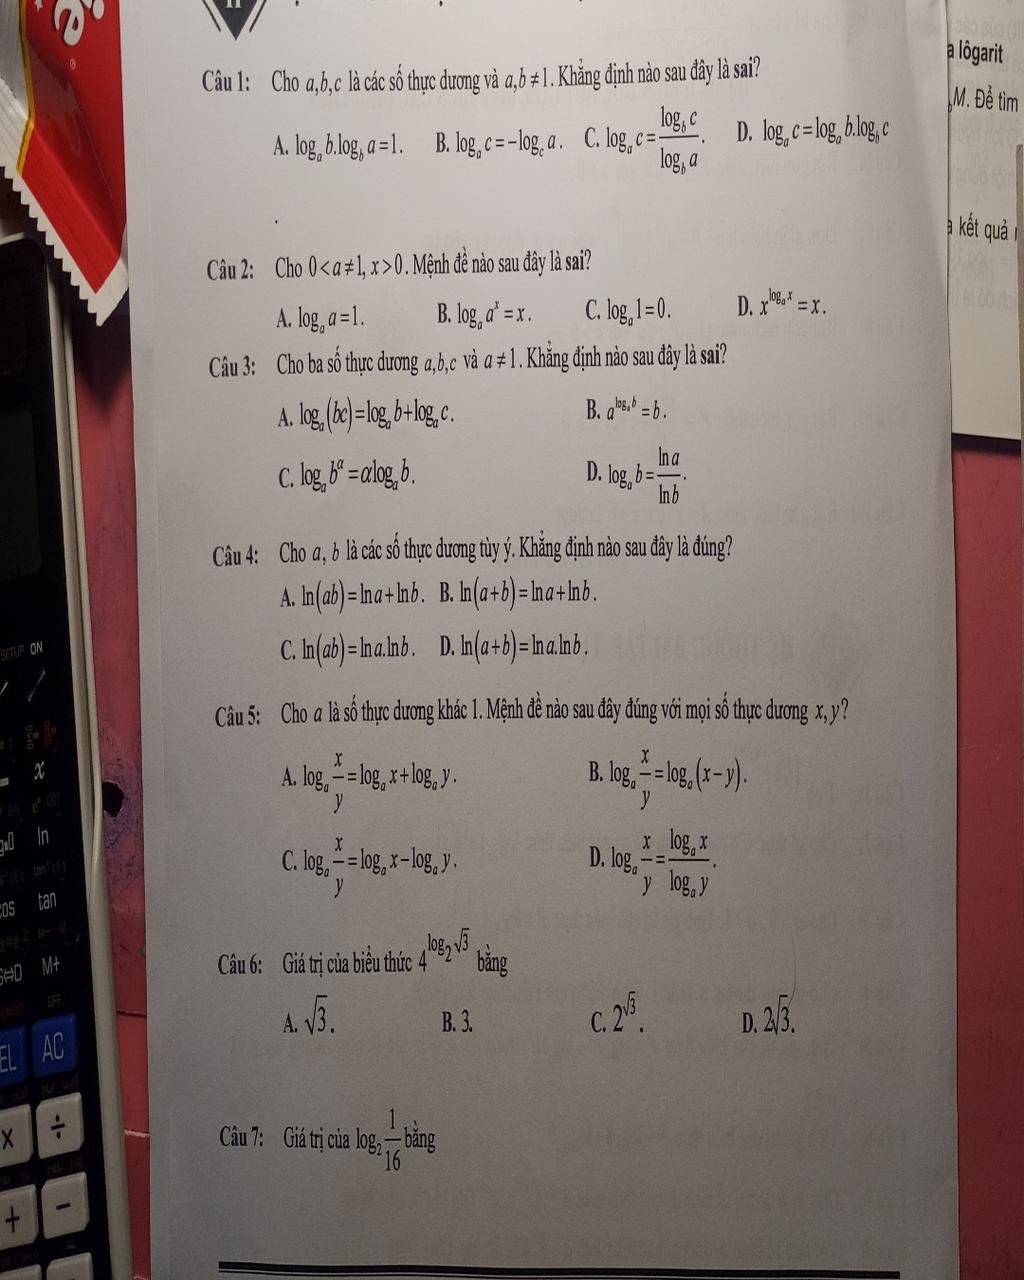 II
Câu 1: Cho a,b,c là các số thực dương và a,b ≠ 1. Khẳng định nào sau đây là sai?
A. logₐ b.log_b a = 1. B. logₐ c = −log_c a. C. logₐ c = log_b c / log_b a. D. logₐ c = logₐ b.log_b c
Câu 2: Cho 0 < a ≠ 1, x > 0. Mệnh đề nào sau đây là sai?
A. logₐ a = 1. B. logₐ aˣ = x. C. logₐ 1 = 0. D. x^(logₐ x) = x.
Câu 3: Cho ba số thực dương a,b,c và a ≠ 1. Khẳng định nào sau đây là sai?
A. logₐ(bc) = logₐ b + logₐ c. B. a^(logₐ b) = b.
C. logₐ b^α = α logₐ b. D. logₐ b = ln a / ln b.
Câu 4: Cho a, b là các số thực dương tùy ý. Khẳng định nào sau đây là đúng?
A. ln(ab) = ln a + ln b. B. ln(a+b) = ln a + ln b.
C. ln(ab) = ln a.ln b. D. ln(a+b) = ln a.ln b.
Câu 5: Cho a là số thực dương khác 1. Mệnh đề nào sau đây đúng với mọi số thực dương x, y?
A. logₐ x/y = logₐ x + logₐ y. B. logₐ x/y = logₐ(x − y).
C. logₐ x/y = logₐ x − logₐ y. D. logₐ x/y = logₐ x / logₐ y.
Câu 6: Giá trị của biểu thức 4^(log₂ √3) bằng
A. √3. B. 3. C. 2^√3. D. 2√3.
Câu 7: Giá trị của log₂ 1/16 bằng
lôgarit
M. Để tìm
kết quả
SETUP ON
x
ln
tan
M+
AC
×
÷
+
−